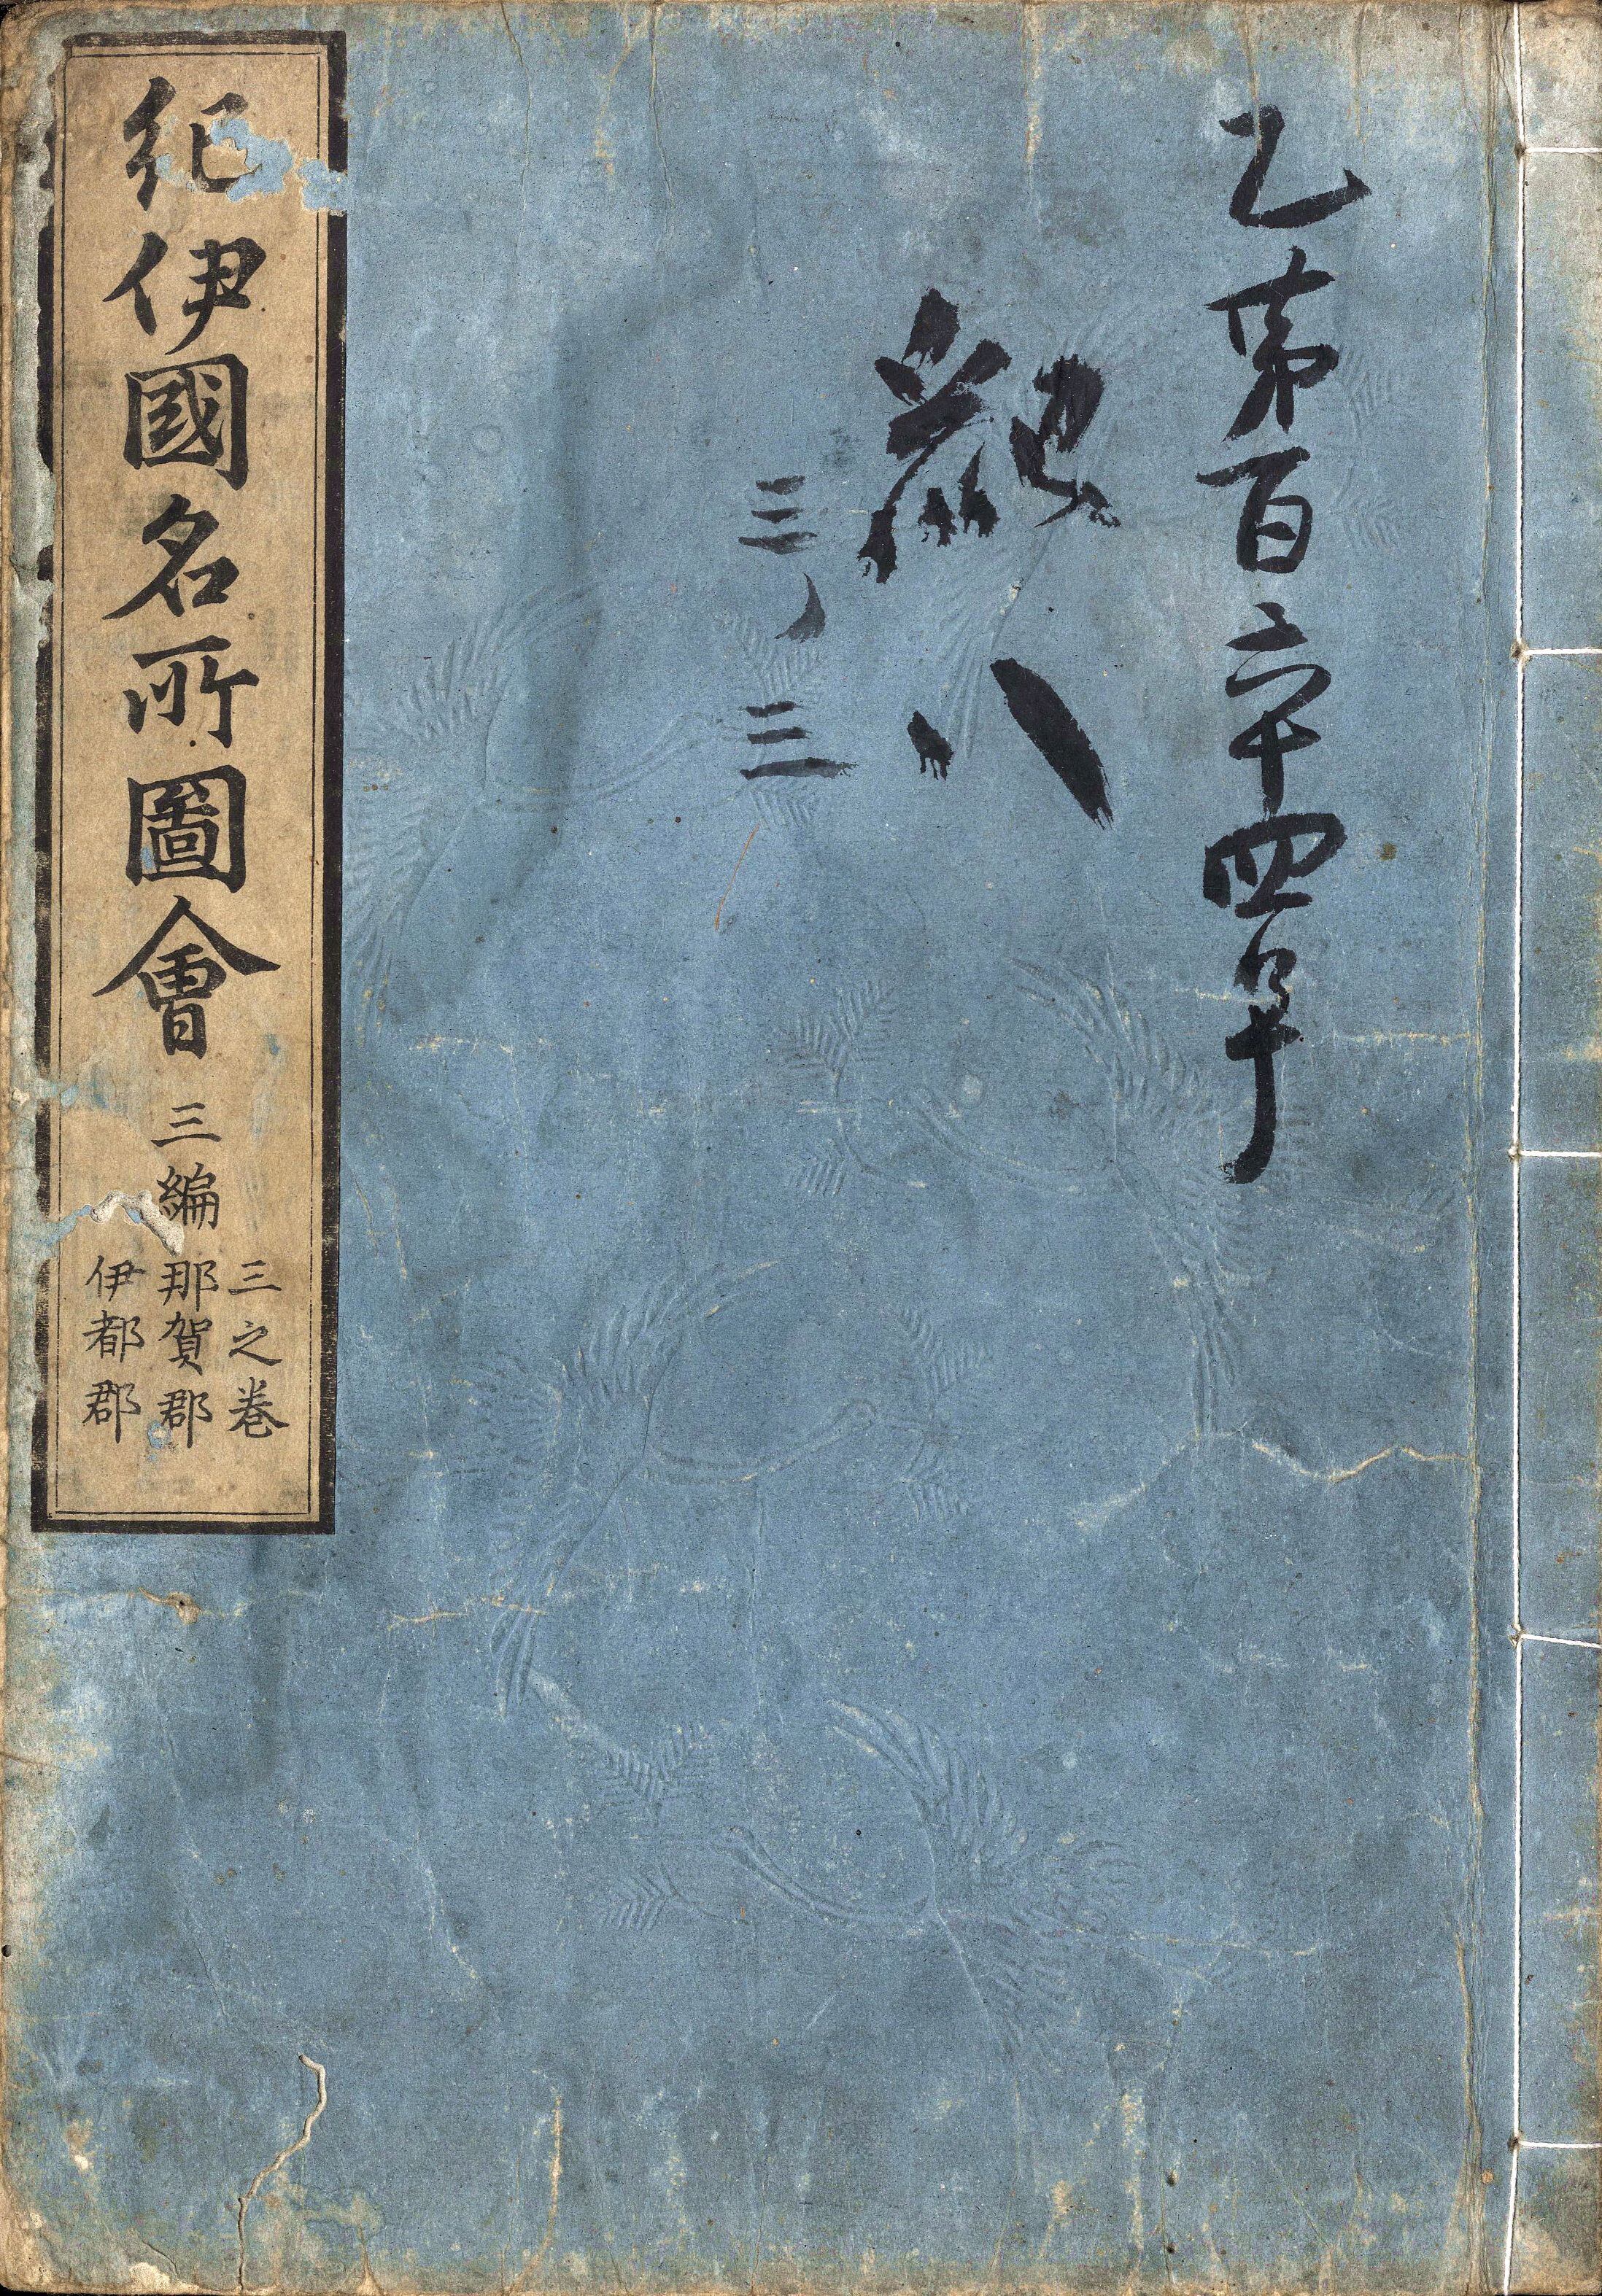 乙第百六十四号
八
三ノ三
紀伊國名所圖會
三編
三之巻
那賀郡
伊都郡